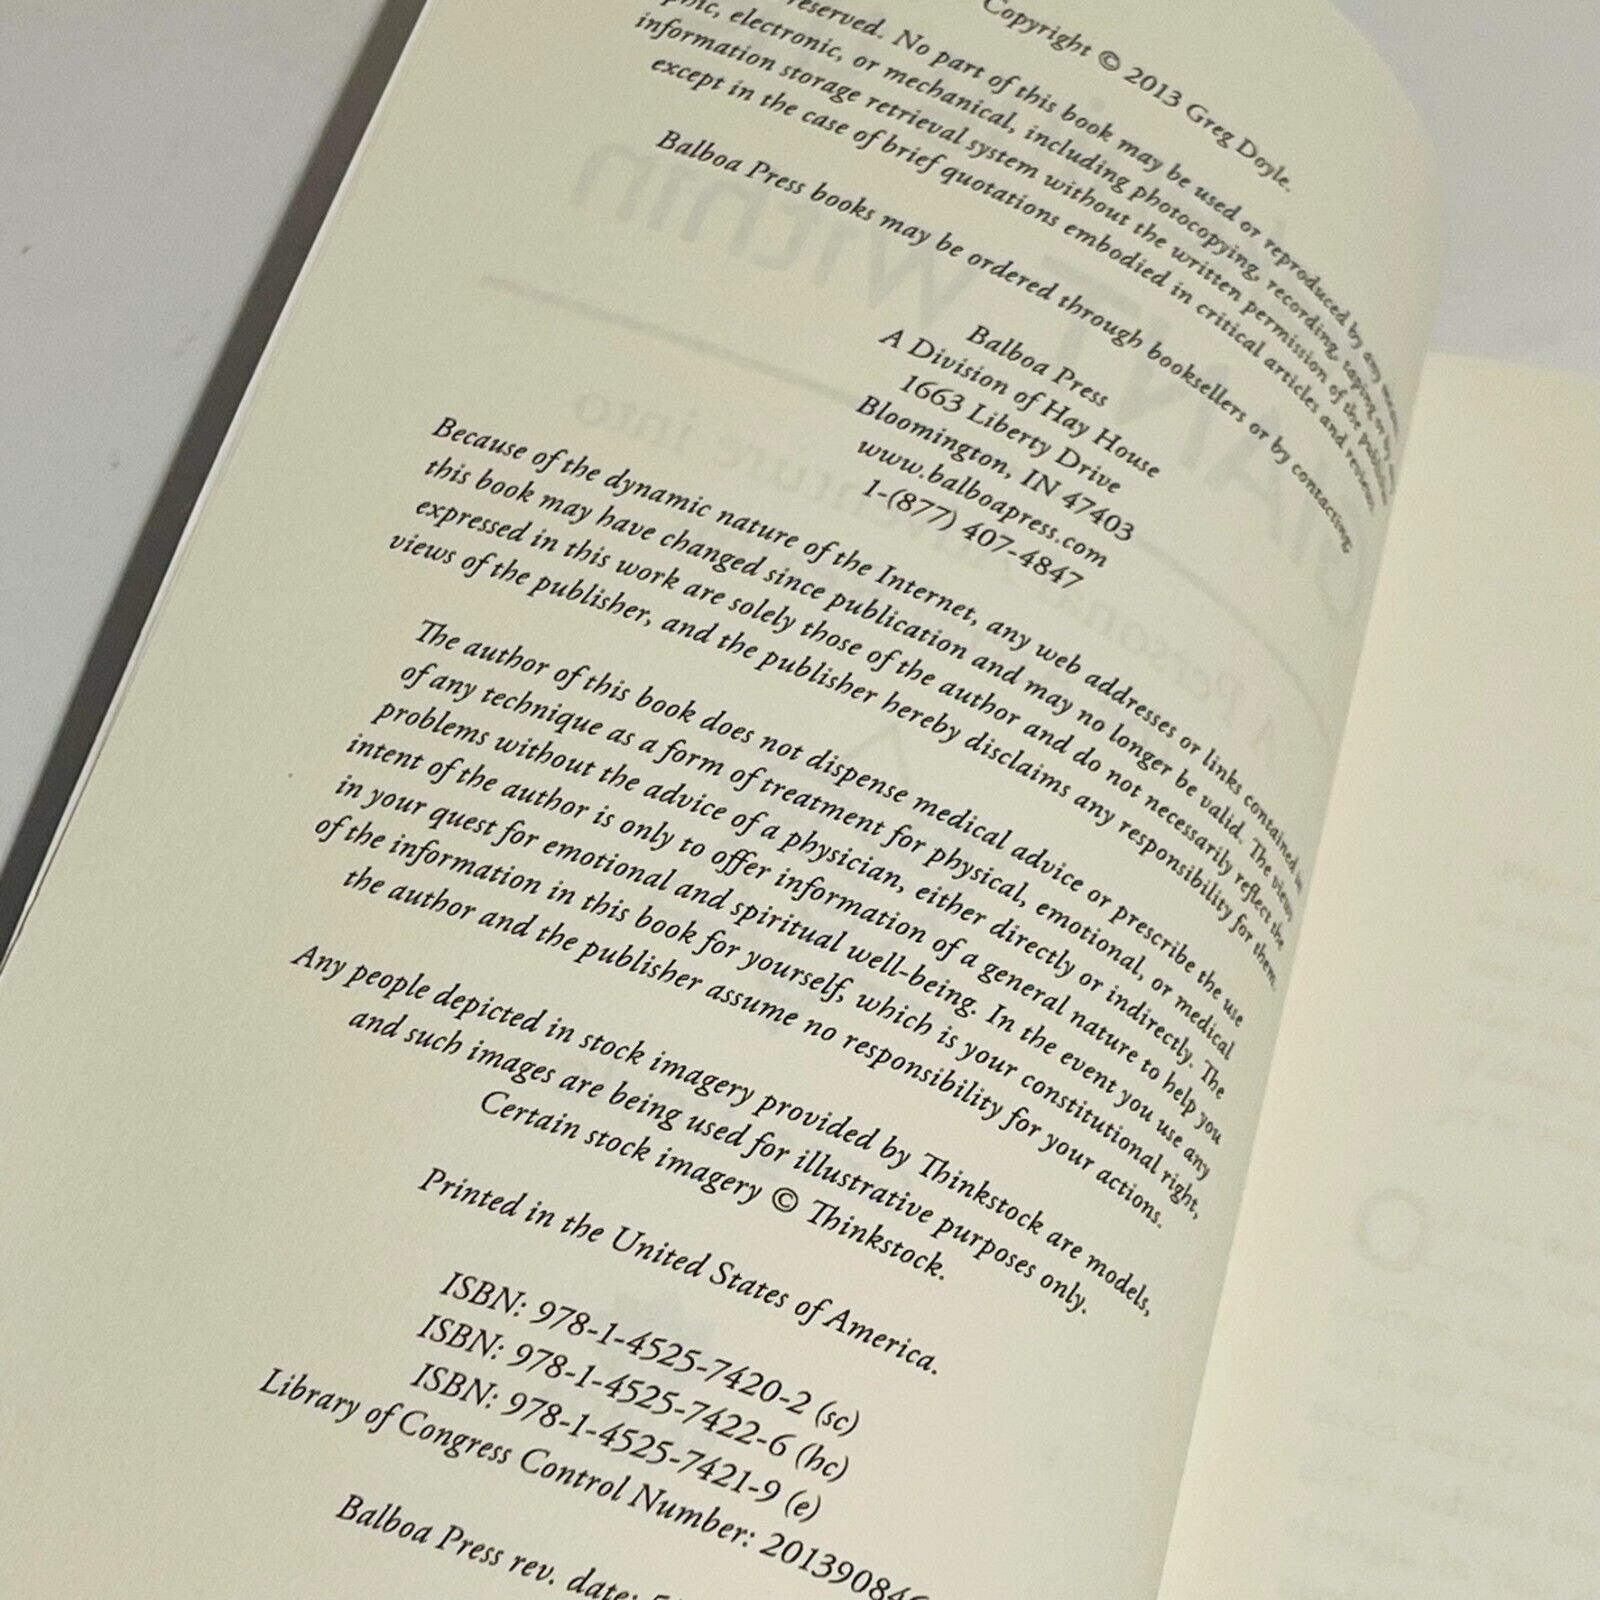 Copyright © 2013 Greg Doyle.
reserved. No part of this book may be used or reproduced by any
electronic, or mechanical, including photocopying, recording, taping or by
information storage retrieval system without the written permission of the
except in the case of brief quotations embodied in critical articles and reviews.
Balboa Press books may be ordered through booksellers or by contacting:
Balboa Press
A Division of Hay House
1663 Liberty Drive
Bloomington, IN 47403
www.balboapress.com
1-(877) 407-4847
Because of the dynamic nature of the Internet, any web addresses or links contained in
this book may have changed since publication and may no longer be valid. The views
expressed in this work are solely those of the author and do not necessarily reflect the
views of the publisher, and the publisher hereby disclaims any responsibility for them.
The author of this book does not dispense medical advice or prescribe the use
of any technique as a form of treatment for physical, emotional, or medical
problems without the advice of a physician, either directly or indirectly. The
intent of the author is only to offer information of a general nature to help you
in your quest for emotional and spiritual well-being. In the event you use any
of the information in this book for yourself, which is your constitutional right,
the author and the publisher assume no responsibility for your actions.
Any people depicted in stock imagery provided by Thinkstock are models,
and such images are being used for illustrative purposes only.
Certain stock imagery © Thinkstock.
Printed in the United States of America.
ISBN: 978-1-4525-7420-2 (sc)
ISBN: 978-1-4525-7422-6 (hc)
ISBN: 978-1-4525-7421-9 (e)
Library of Congress Control Number:
Balboa Press rev. date: